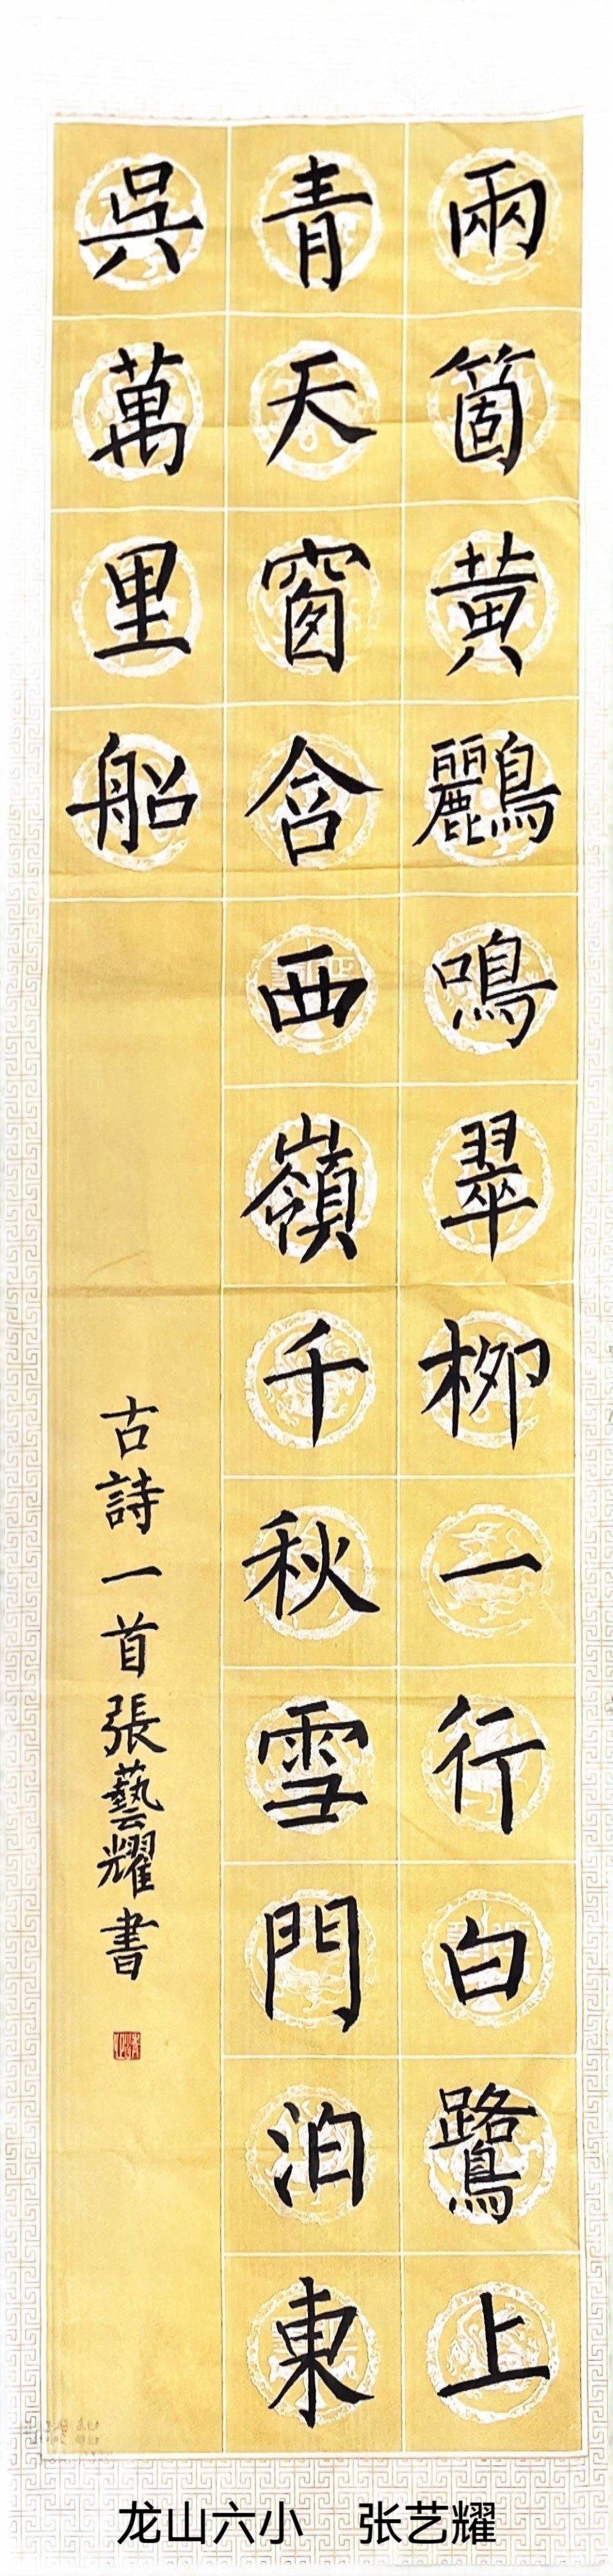 兩箇黃鸝鳴翠柳一行白鷺上
青天窗含西嶺千秋雪門泊東
吳萬里船
古詩一首張藝耀書
龙山六小 张艺耀